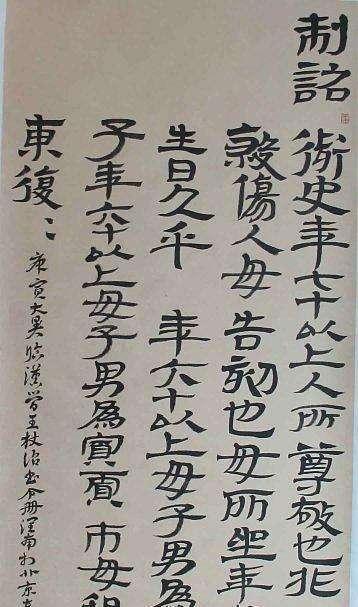 制詔御史年七十以上人所尊敬也非
殺傷人毋告劾也毋所坐年
生日久乎 年六十以上毋子男為
子年六十以上毋子男為寡賈市毋租
東復〻
庚寅大昊臨漢簡王杖詔書令册 於北京